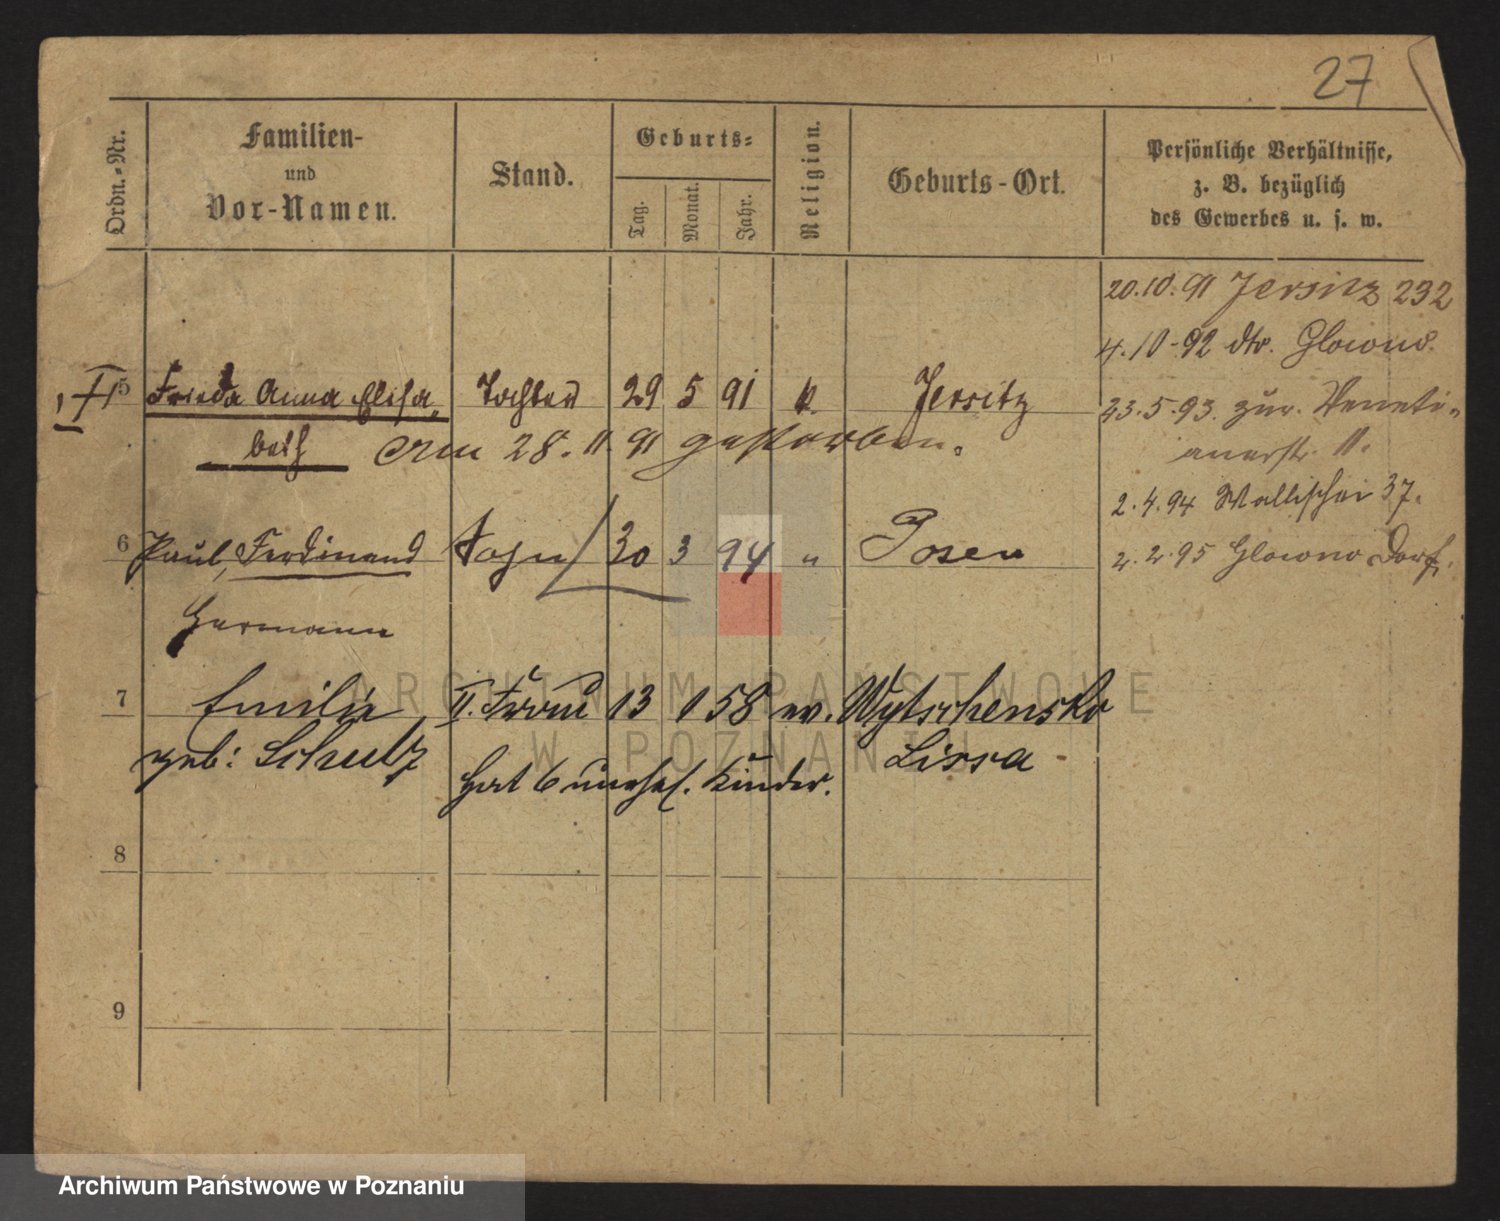 27
Ordn.-Nr.
Familien-
und
Vor-Namen.
Stand.
Geburts-
Tag.
Monat.
Jahr.
Religion.
Geburts-Ort.
Persönliche Verhältnisse,
z. B. bezüglich
des Gewerbes u. s. w.
20.10.91 Jersitz 232
4.10.92 Glowno.
5 Frieda Anna Elisa- Tochter 29 5 91 k. Jersitz
23.5.93. zur. Veneti-
beth am 28. 11. 91 gestorben.
anerstr. 11.
2.4.94 Wallischei 37.
6 Paul, Ferdinand Sohn 30 3 94 " Posen
2.2.95 Glowno Dorf.
Hermann
7 Emilie II. Frau 13 1 58 ev. Wytschensko
geb: Schulz Lissa
hat 6 unehel. Kinder.
8
9
ARCHIWUM PAŃSTWOWE
W POZNANIU
Archiwum Państwowe w Poznaniu